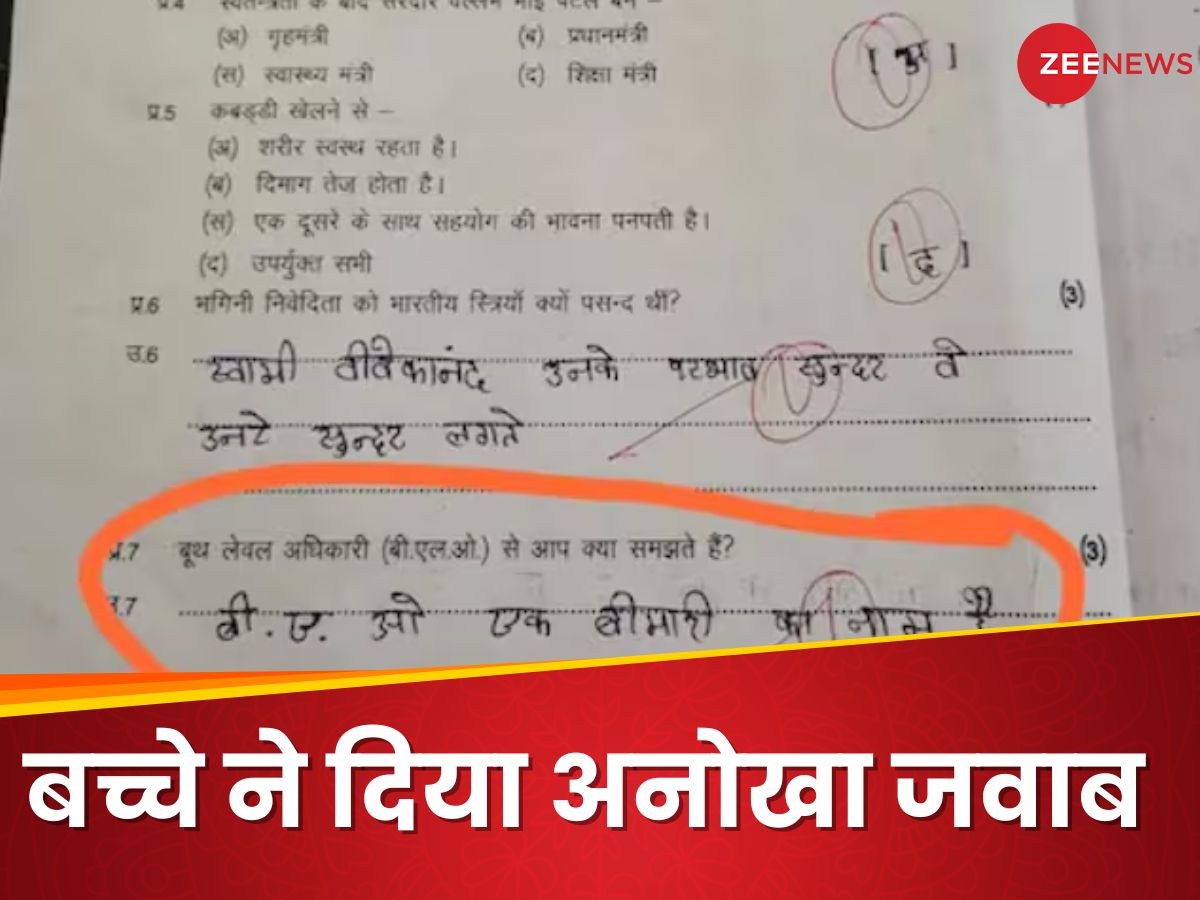 प्र.4 स्वतन्त्रता के बाद सरदार वल्लभ भाई पटेल बने –
(अ) गृहमंत्री (ब) प्रधानमंत्री [ अ ]
(स) स्वास्थ्य मंत्री (द) शिक्षा मंत्री
ZEENEWS
प्र.5 कबड्डी खेलने से –
(अ) शरीर स्वस्थ रहता है।
(ब) दिमाग तेज होता है।
(स) एक दूसरे के साथ सहयोग की भावना पनपती है।
(द) उपर्युक्त सभी [ द ]
प्र.6 भगिनी निवेदिता को भारतीय स्त्रियाँ क्यों पसन्द थीं? (3)
उ.6 स्वामी वीवेकानंद उनके परभाव सुन्दर वे
उनटे सुन्दर लगते
प्र.7 बूथ लेवल अधिकारी (बी.एल.ओ.) से आप क्या समझते हैं? (3)
उ.7 बी.ए. ओ एक बीमारी का नाम है
बच्चे ने दिया अनोखा जवाब